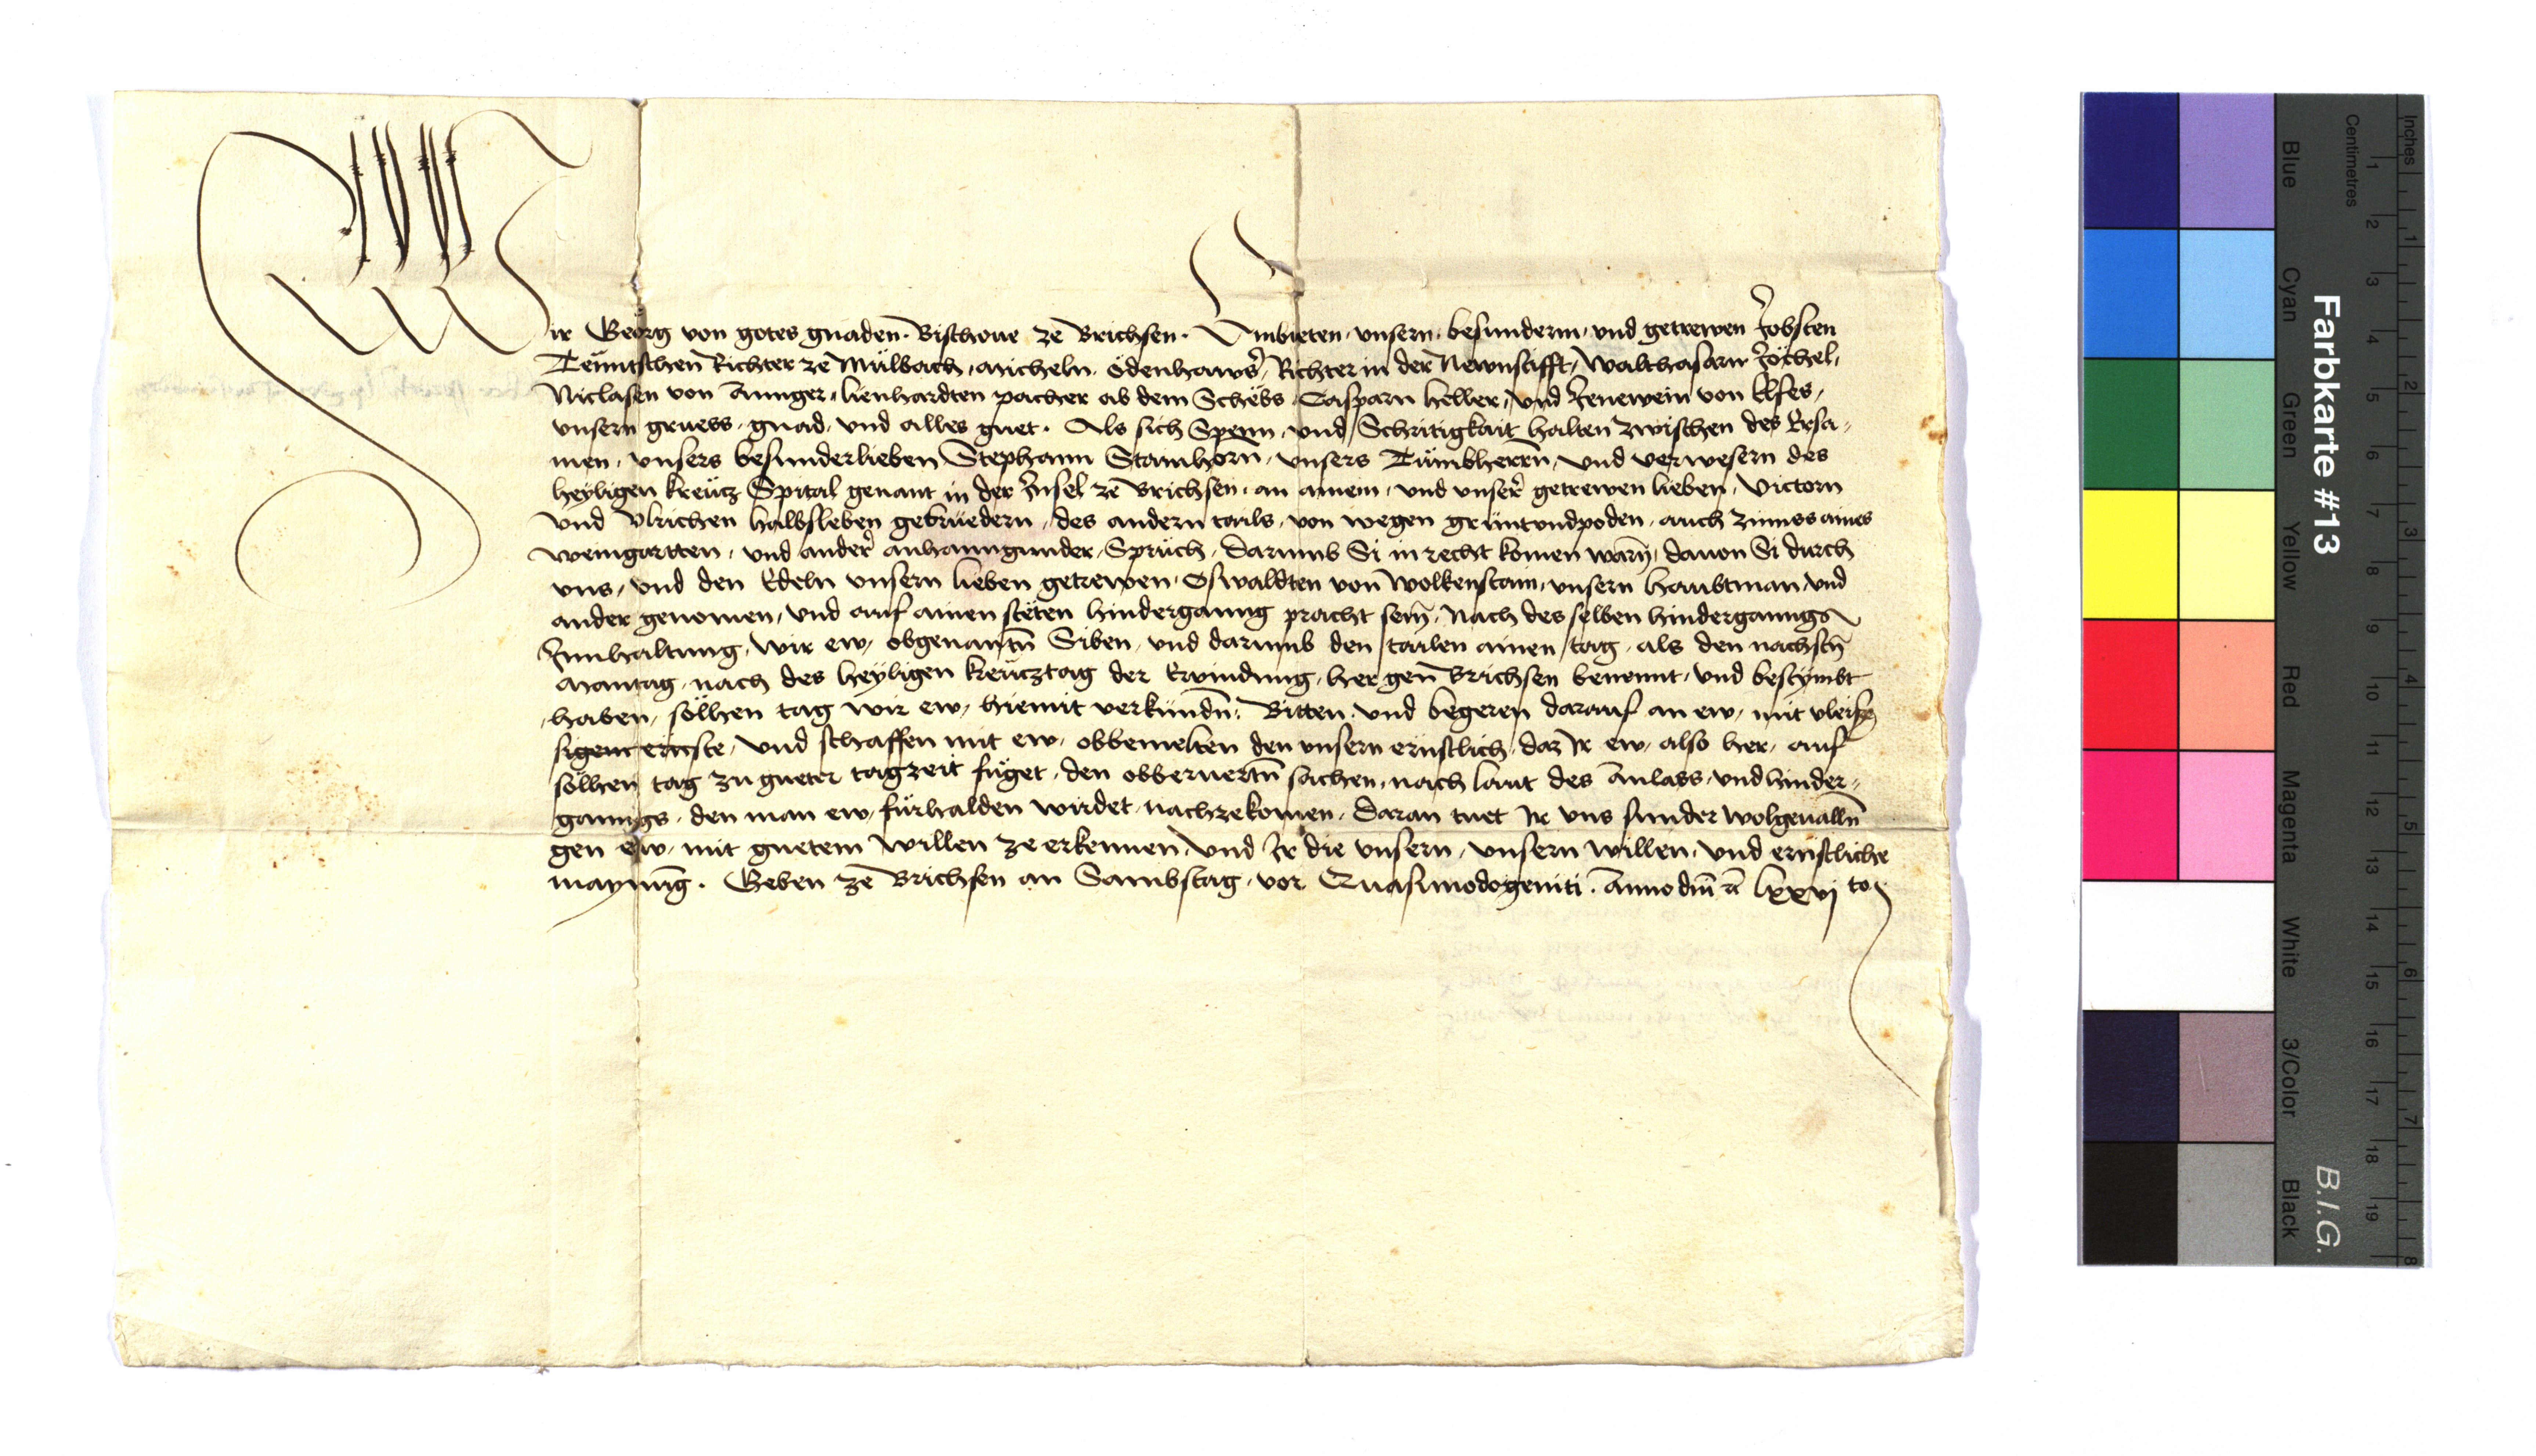 Wir Georg von gotes gnaden. Bischoue ze Brichsen. Embieten, vnsern, besundern, vnd getrewen Jobsten
Richter ze Mülbach, Micheln Ödenhawser, Richter in der Newnstifft, Walthasarn Jöchel,
Niclasen von Annger, lienhardten pacher ab dem Schebs, Casparn heller, vnd Jenewein von Elses,
vnsern gruess, gnad, vnd alles guet. Als sich Spenn, vnd Schritigkait halten zwischen des Ersa-
men, vnsers besunderlieben Stephann Stainhorn, vnsers Tumbherrn, vnd verwesern des
heyligen kreücz Spital genant in der Insel ze Brichsen, an ainem, vnd vnser getrewen lieben, Victorn
vnd Vlrichen halbsleben gebrüedern, des andern tails, von wegen grünt vnd poden, auch zinnss aines
weingartten, vnd ander anhanngunder, Sprüch, darumb Si in recht komen warn, dauon Si durch
vns, vnd den Edeln vnsern lieben getrewen, Oswaldten von Wolkenstain, vnsern haubtman, vnd
ander genomen, vnd auf ainen stëten hinderganng pracht sein, Nach des selben hinderganngs
Innhaltung, wir ew, obgenantn Siben, vnd darumb den tailen ainen tag, als den nachstn
Mantag, nach des heyligen kreücztag der Erfindung, her gen Brichsen benennt, vnd bestymbt
haben, sölhen tag wir ew, hiemit verkündn. Bitten, vnd begeren darauf an ew, mit vleis-
sigem ernste, vnd schaffen mit ew, obbemelten den vnsern ernstlich, daz Ir ew, also her, auf
sölhen tag zu gueter tagzeit füget, den obberuertn sachen, nach laut des Anlass, vnd hinder-
ganngs, den man ew, fürhalden wirdet, nachzekomen, Daran tuet Ir vns sunder wolgeualln
gen ew, mit guetem willen ze erkennen, vnd Ir die vnsern, vnsern willen, vnd ernstliche
maynung. Geben ze Brichsen an Sambstag, vor Quasimodogeniti. Anno dm̄ lxxvj to
Farbkarte #13
B.I.G.
Blue
Cyan
Green
Yellow
Red
Magenta
White
3/Color
Black
Centimetres
Inches
1 2 3 4 5 6 7 8 9 10 11 12 13 14 15 16 17 18 19
1 2 3 4 5 6 7 8